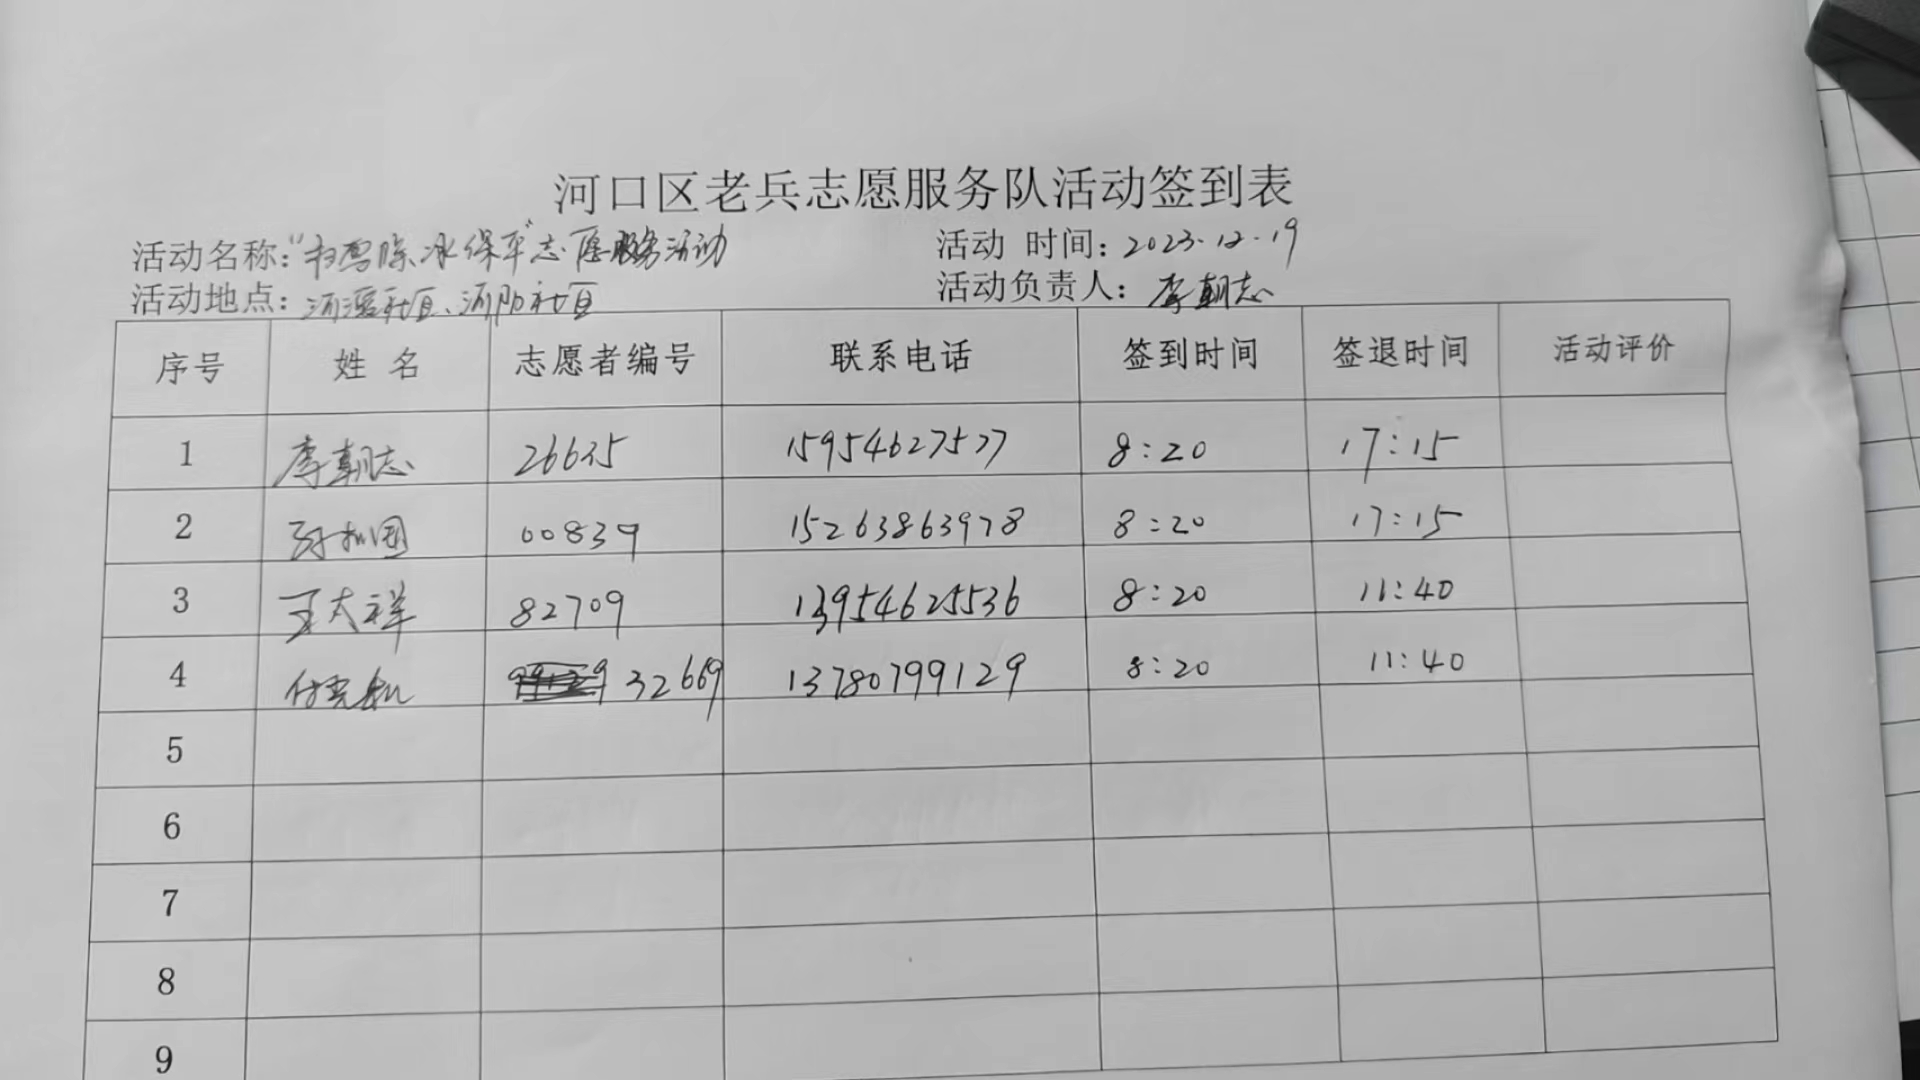 河口区老兵志愿服务队活动签到表
活动名称:“扫雪除冰保平”志愿服务活动 活动 时间: 2023.12.19
活动地点: 河滨社区、河阳社区 活动负责人: 李朝志
序号 姓 名 志愿者编号 联系电话 签到时间 签退时间 活动评价
1 李朝志 26635 15954627527 8:20 17:15
2 国 00839 15263863978 8:20 17:15
3 王太祥 82709 13954625536 8:20 11:40
4 付 32669 13780799129 8:20 11:40
5
6
7
8
9